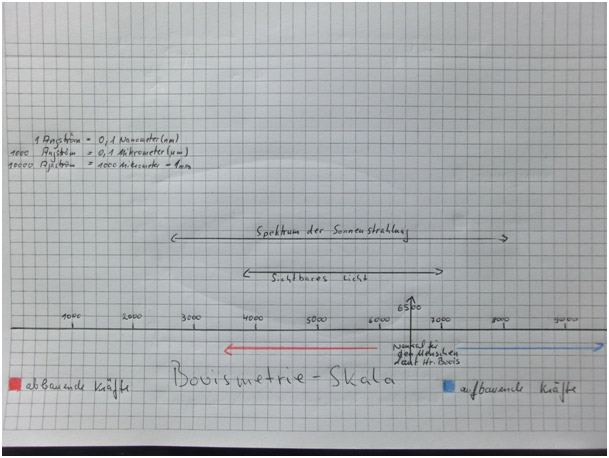 1 Angström = 0,1 Nanometer (nm)
1000 Angström = 0,1 Mikrometer (µm)
10000 Angström = 1000 Mikrometer = 1mm
Spektrum der Sonnenstrahlung
Sichtbares Licht
6500
1000 2000 3000 4000 5000 6000 7000 8000 9000
Normal für
den Menschen
laut Hr. Bovis
Bovismetrie-Skala
abbauende Kräfte
aufbauende Kräfte